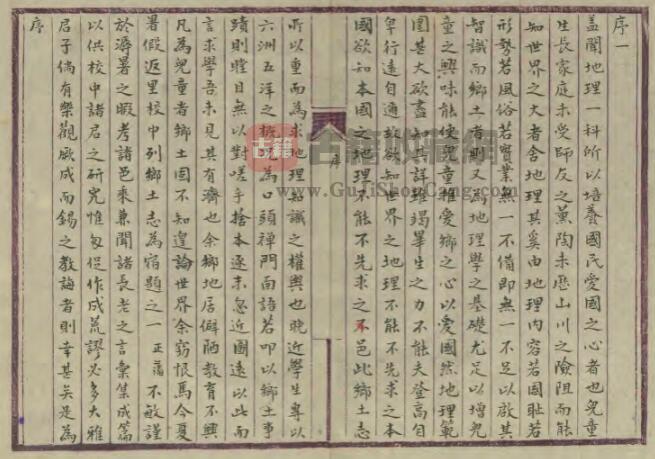 序一
蓋聞地理一科所以培養國民愛國之心者也兒童
生長家庭未受師友之薰陶未歷山川之險阻而能
知世界之大者舍地理其奚由地理內容若國耻若
形勢若風俗若實業無一不備即無一不足以啟其
智識而鄉土者則又為地理學之基礎尤足以增兒
童之興味能使兒童推愛鄉之心以愛國然地理範
圍甚大欲盡知其詳雖竭畢生之力不能夫登高自
卑行遠自邇故欲知世界之地理不能不先求之本
國欲知本國之地理不能不先求之本邑此鄉土志
所以重而為求地理知識之權輿也晚近學生專以
六洲五洋之概況為口頭禪門面語若叩以鄉土事
蹟則瞠目無以對嗟乎捨本逐末忽近圖遠以此而
言求學吾未見其有濟也余鄉地居僻陋教育不興
凡為兒童者鄉土固不知遑論世界余竊恨焉今夏
暑假返里校中列鄉土志為宿題之一 不敏謹
於溽暑之暇考諸邑乘兼聞諸長老之言彙集成篇
以供校中諸君之研究惟匆促作成荒謬必多大雅
君子倘有樂觀厥成而錫之教誨者則幸甚矣是為
序
古籍收藏網
www.GuJiShouCang.com